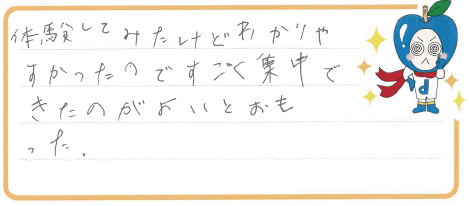 体験してみたけどわかりや
すかったのですごく集中で
きたのがよいとおも
った。
d